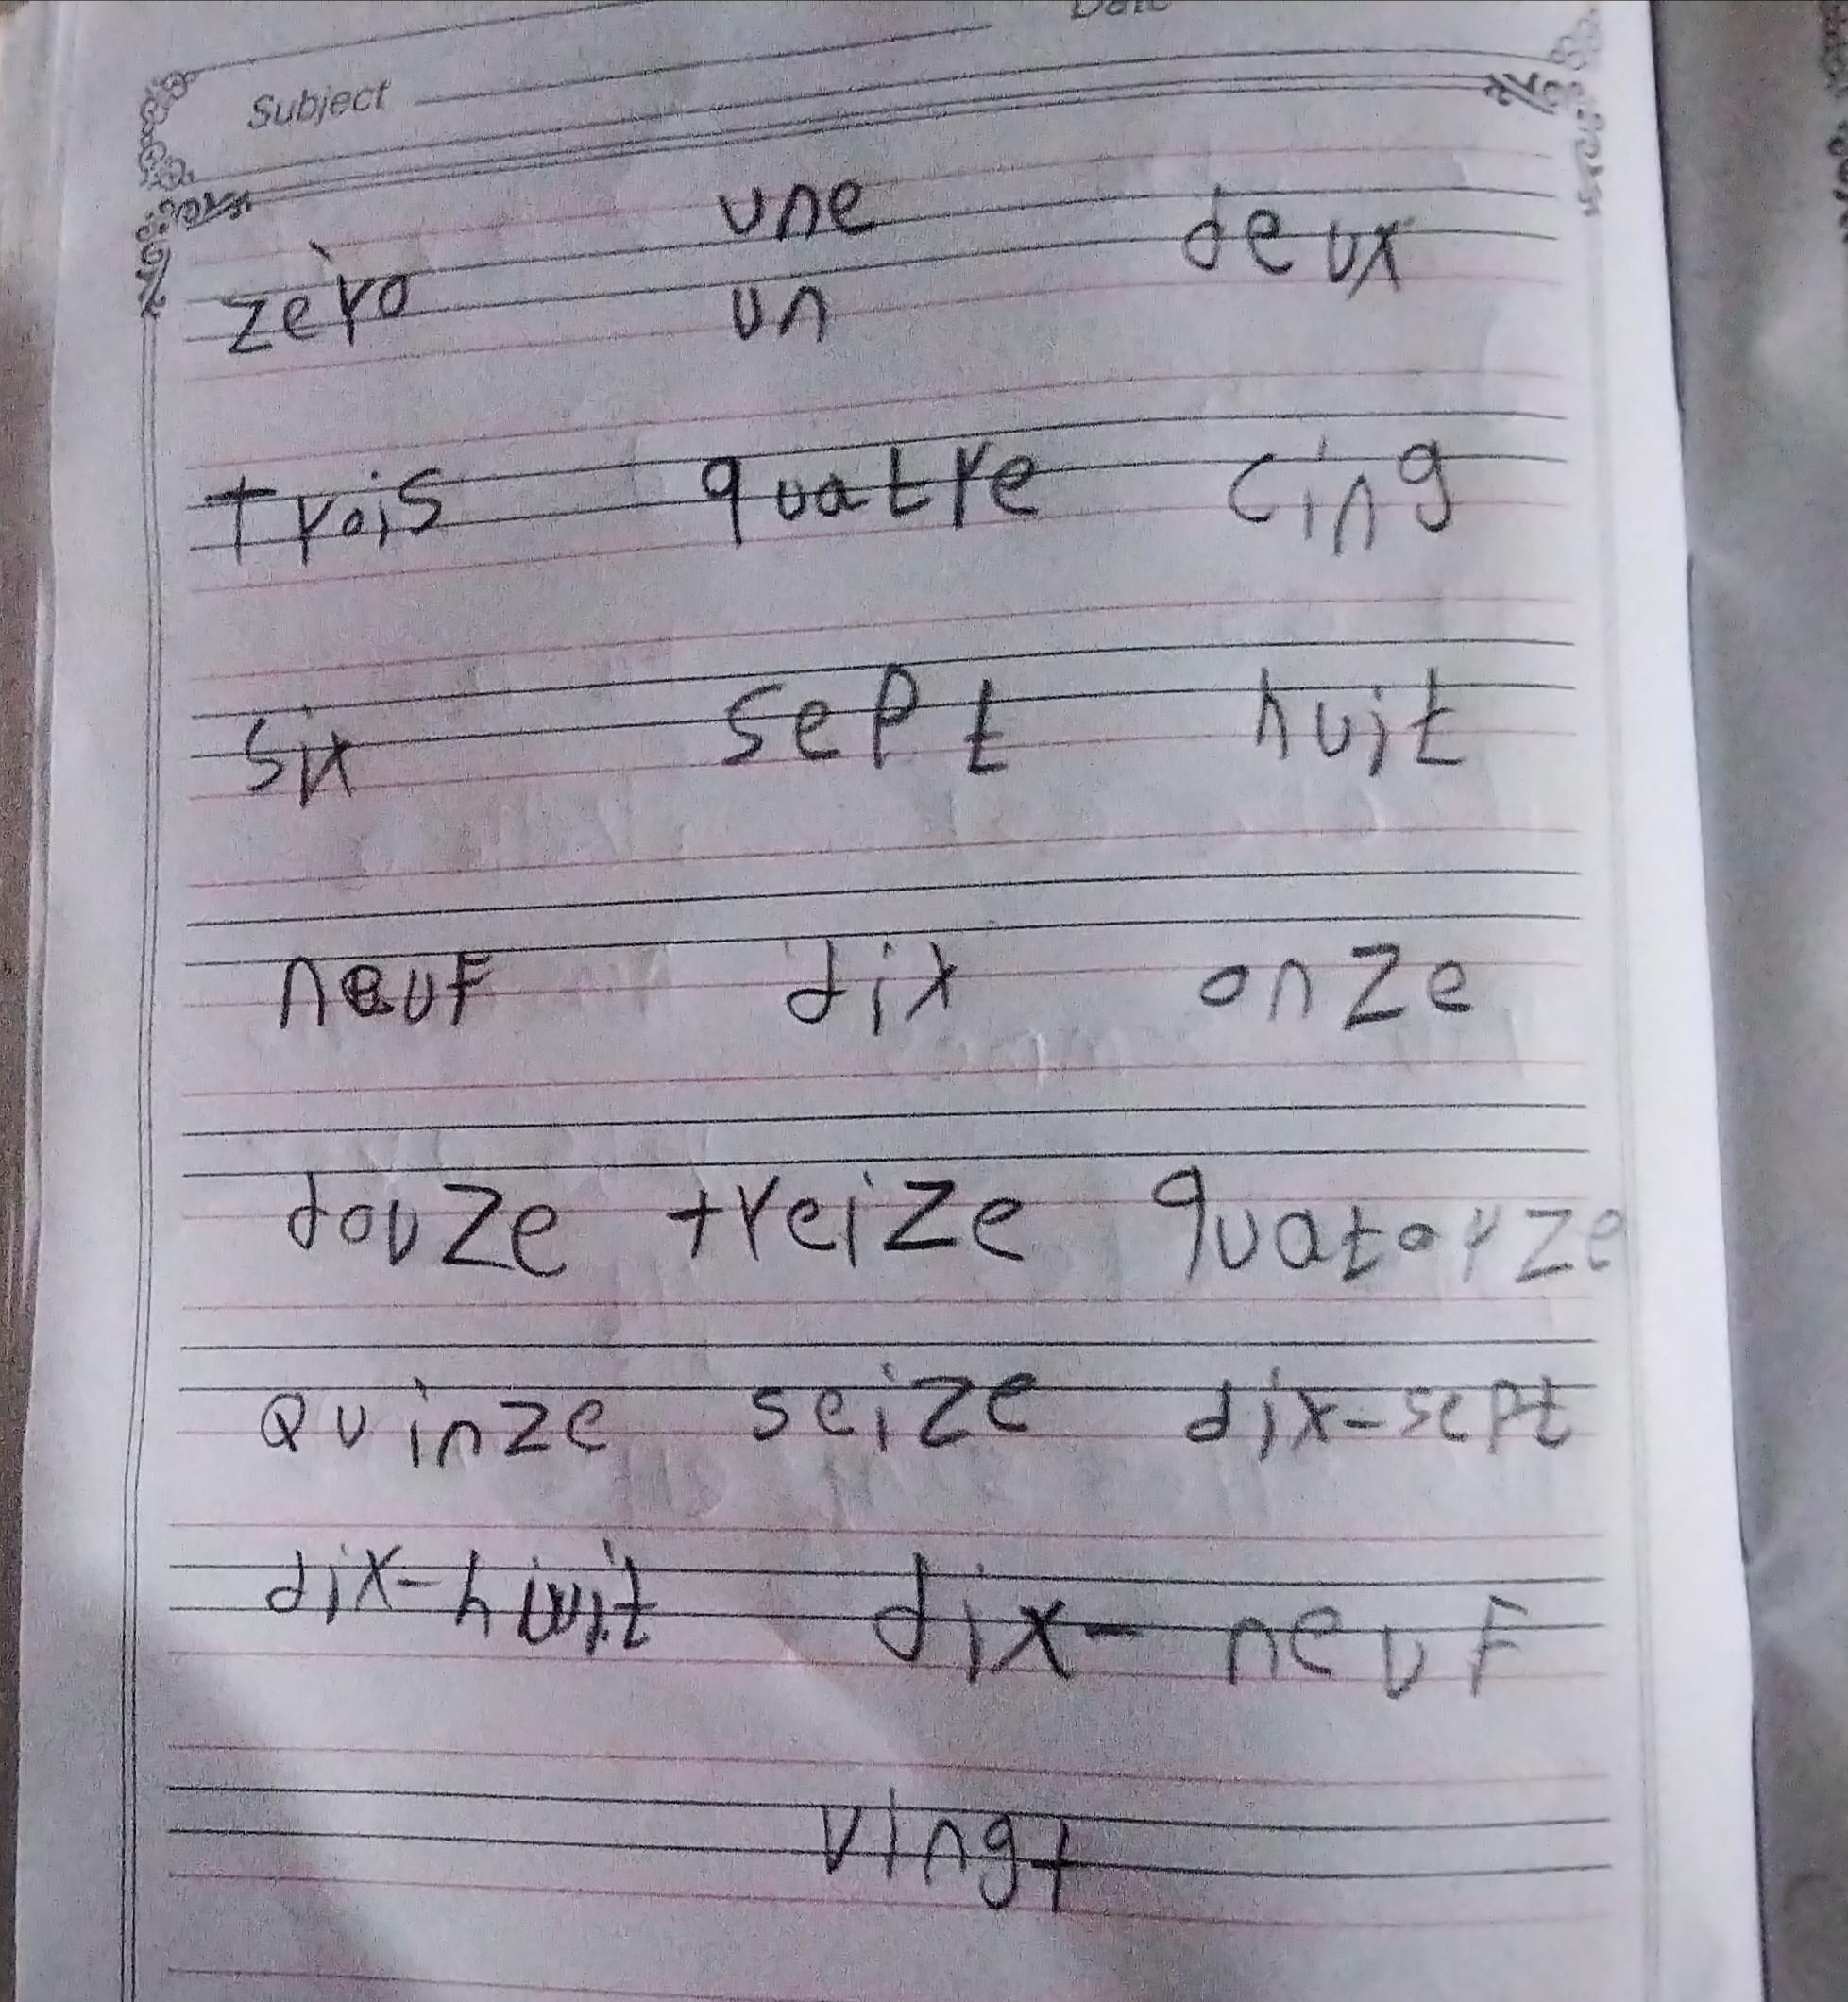 Date
Subject
zèro une un deux
trois quatre cing
six sept huit
neuf dix onze
douze treize quatorze
Quinze seize dix-sept
dix-huit dix-neuf
vingt